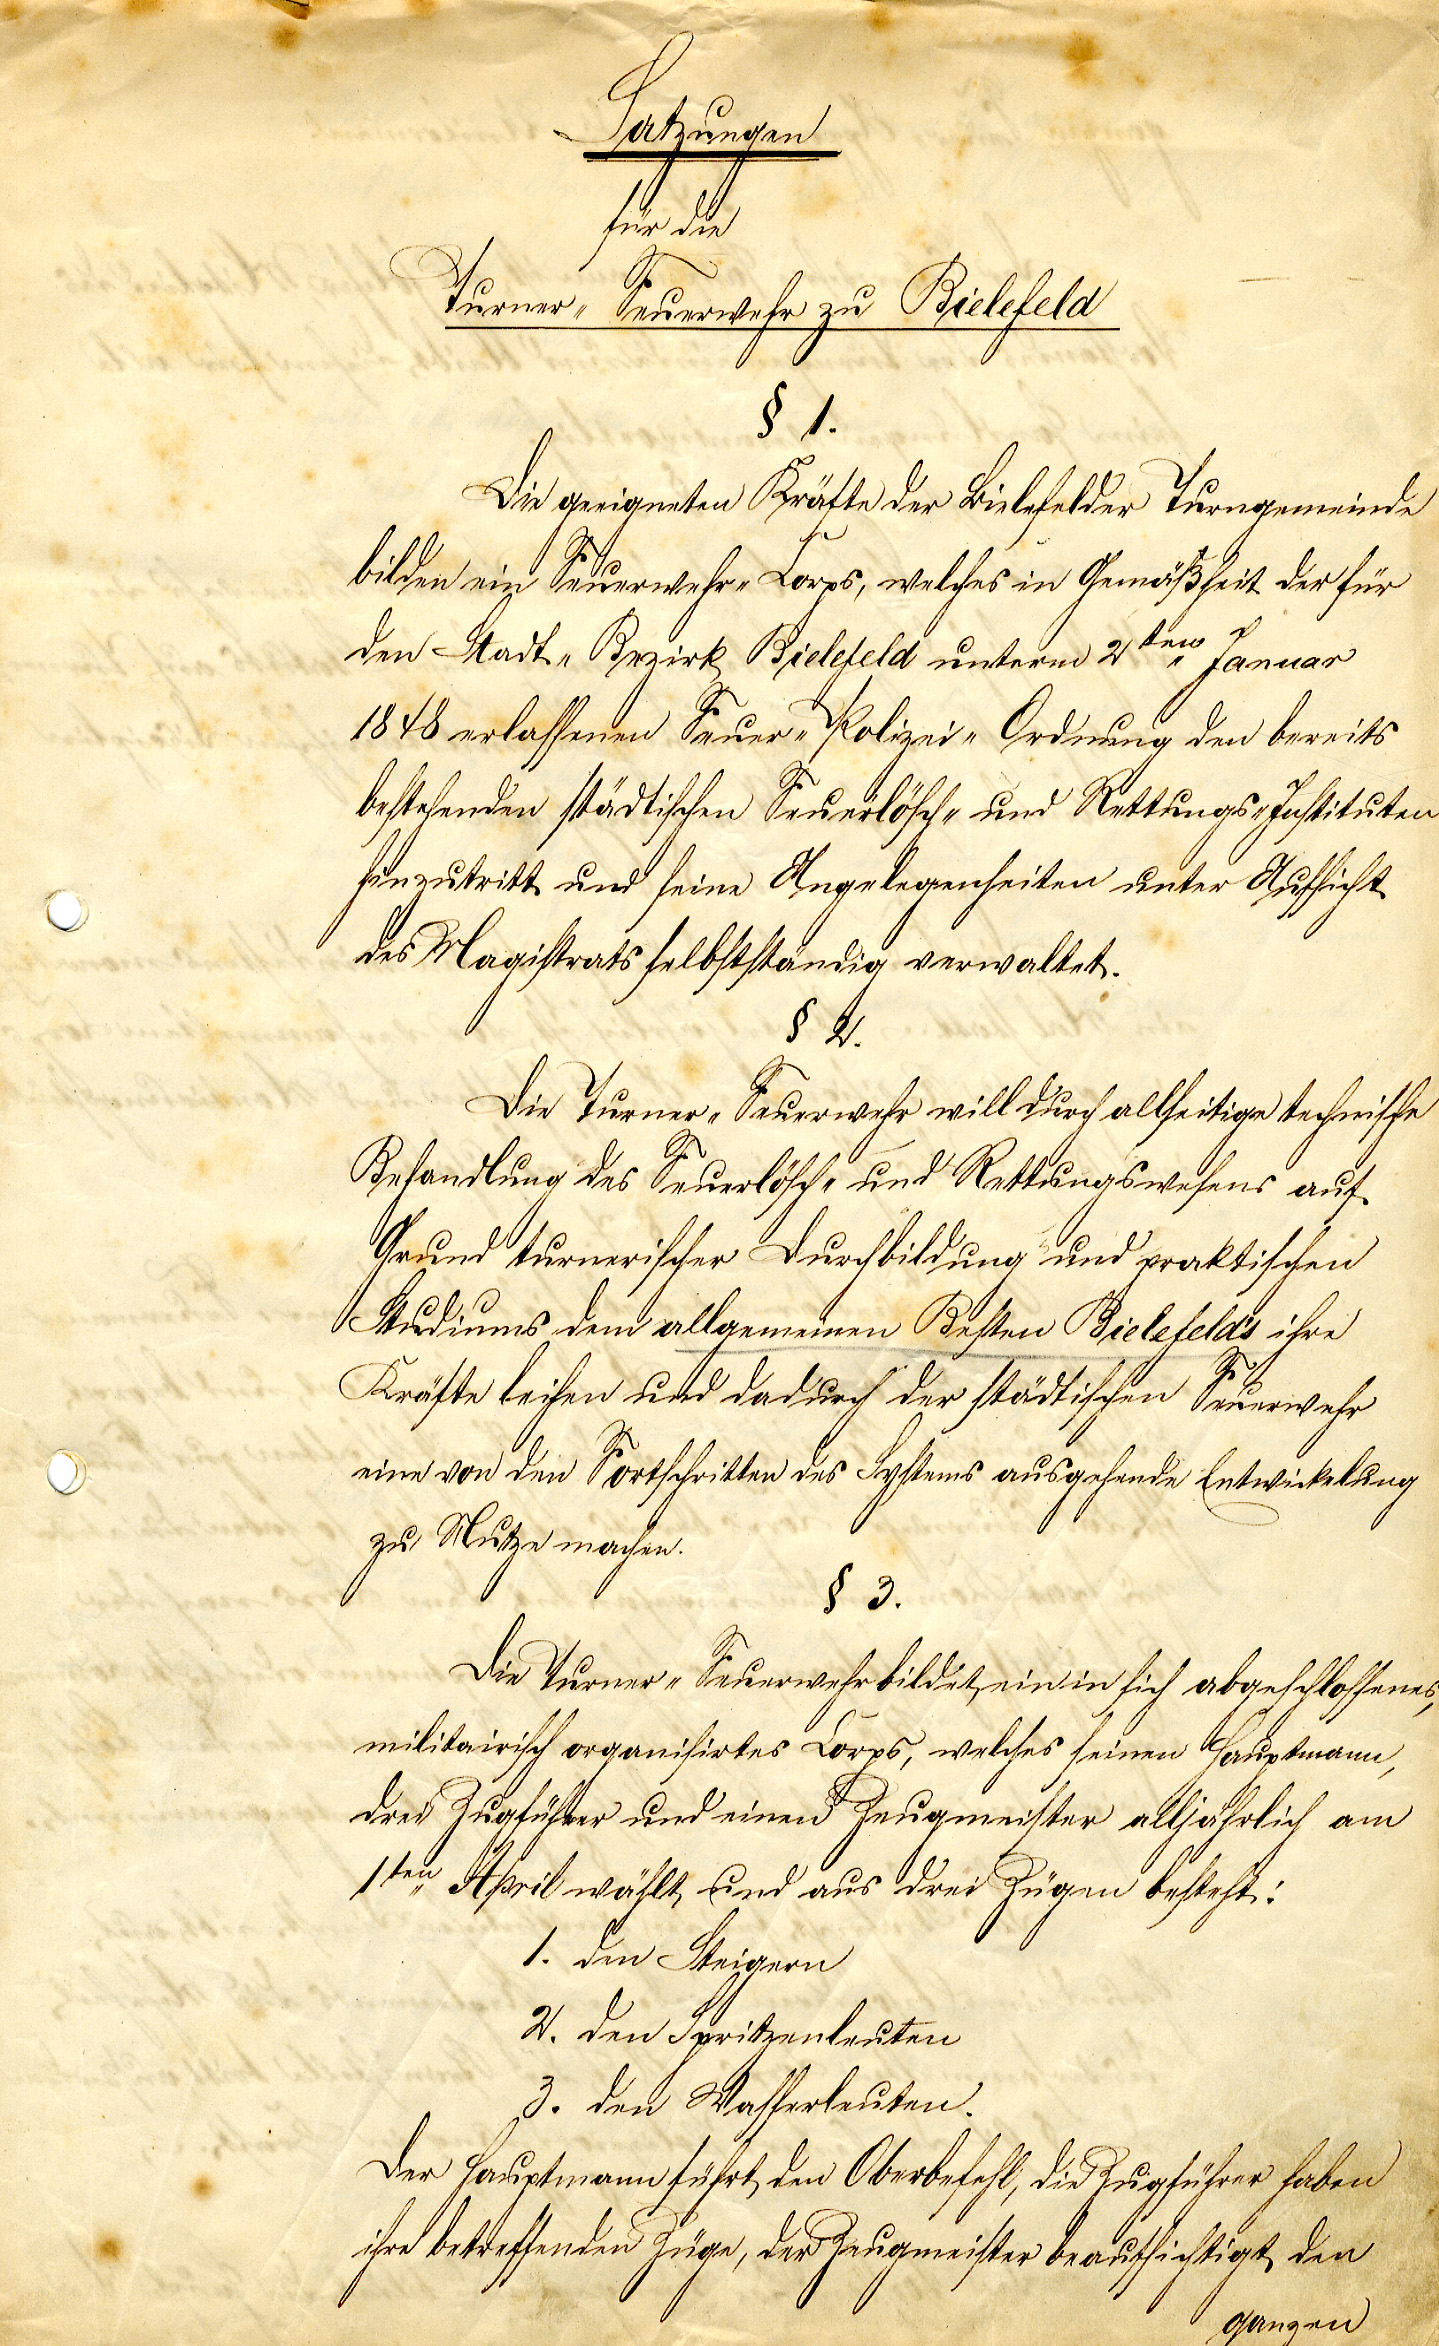 Satzungen
für die
Turner-Feuerwehr zu Bielefeld
§ 1.
Die geeigneten Kräfte der Bielefelder Turngemeinde
bilden ein Feuerwehr-Corps, welches in Gemäßheit der für
den Stadt-Bezirk Bielefeld unterm 2ten Januar
1848 erlassenen Feuer-Polizei-Ordnung den bereits
bestehenden städtischen Feuerlösch- und Rettungs-Instituten
hinzutritt und seine Angelegenheiten unter Aufsicht
des Magistrats selbstständig verwaltet.
§ 2.
Die Turner-Feuerwehr will durch allseitige technische
Behandlung des Feuerlösch- und Rettungswesens auf
Grund turnerischer Durchbildung und praktischen
Studiums dem allgemeinen Besten Bielefeld's ihre
Kräfte leihen und dadurch der städtischen Feuerwehr
eine von den Fortschritten des Systems ausgehende Entwickelung
zu Nutze machen.
§ 3.
Die Turner-Feuerwehr bildet ein in sich abgeschlossenes,
militairisch organisirtes Corps, welches seinen Hauptmann,
drei Zugführer und einen Zeugmeister alljährlich am
1ten April wählt und aus drei Zügen besteht:
1. den Steigern
2. den Spritzenleuten
3. den Wasserleuten.
Der Hauptmann führt den Oberbefehl, die Zugführer haben
ihre betreffenden Züge, der Zeugmeister beaufsichtigt den
ganzen